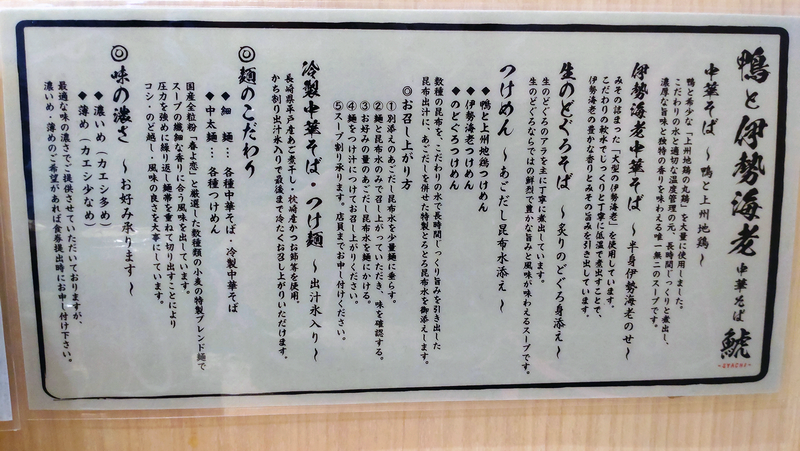 鴨と伊勢海老 中華そば 鯱
~SYACHI~
中華そば ～鴨と上州地鶏～
鴨と希少な「上州地鶏の丸鶏」を大量に使用しました。
こだわりの水と適切な温度管理の元、長時間じっくりと煮出し、
濃厚な旨味と独特の香りを味わえる唯一無二のスープです。
伊勢海老中華そば ～半身伊勢海老のせ～
みその詰まった「大型の伊勢海老」を使用しています。
こだわりの軟水でじっくりと丁寧に低温で煮出すことで、
伊勢海老の豊かな香りとみその旨みを引き出しています。
生のどぐろそば ～炙りのどぐろ身添え～
生のどぐろのアラを主に丁寧に煮出しています。
生のどぐろならではの鮮烈で豊かな旨みと風味が味わえるスープです。
つけめん ～あごだし昆布水添え～
◆鴨と上州地鶏つけめん
◆伊勢海老つけめん
◆のどぐろつけめん
数種の昆布を、こだわりの水で長時間じっくり旨みを引き出した
昆布出汁に、あごだしを併せた特製とろとろ昆布水を御添えします。
◎お召し上がり方
①別添えのあごだし昆布水を少量麺に垂らす。
②麺と昆布水のみで召し上がっていただき、味を確認する。
③お好みの量のあごだし昆布水を麺にかける。
④麺をつけ汁につけてお召し上がりください。
⑤スープ割り承ります。店員までお申し付けください。
冷製中華そば・つけ麺 ～出汁氷入り～
長崎県平戸産あご煮干し・枕崎産かつお節等を使用。
かち割り出汁氷入りで最後まで冷たくお召し上がりいただけます。
◎麺のこだわり
◆細 麺…各種中華そば・冷製中華そば
◆中太麺…各種つけめん
国産全粒粉「春よ恋」と厳選した数種類の小麦の特製ブレンド麺で
スープの繊細な香りに合う風味を出しています。
圧力を強めに繰り返し麺帯を重ねて切り出すことにより
コシ・のど越し・風味の良さを大事にしています。
◎味の濃さ ～お好み承ります～
◆濃いめ（カエシ多め）
◆薄め（カエシ少なめ）
最適な味の濃さでご提供させていただいておりますが、
濃いめ・薄めのご希望があれば食券提出時にお申し付け下さい。